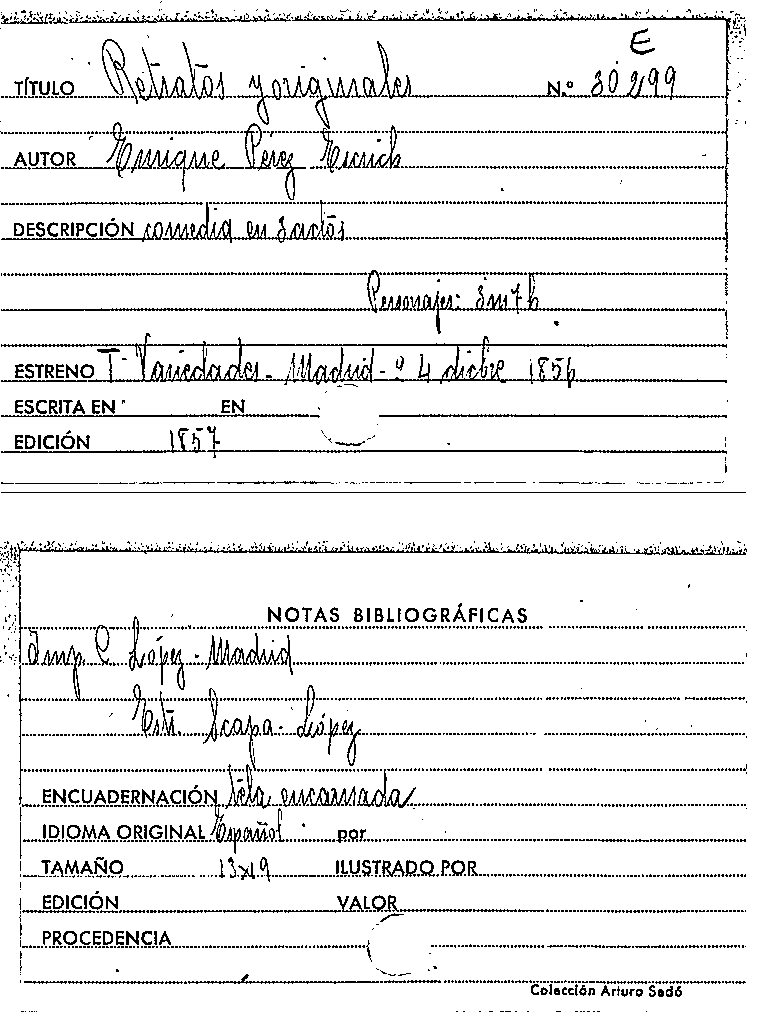 E
TÍTULO Retratos y originales N.º 30299
AUTOR Enrique Pérez Escrich
DESCRIPCIÓN comedia en 3 actos
Personajes: 3m 7h
ESTRENO T. Variedades - Madrid - 24 dicbre 1856
ESCRITA EN EN
EDICIÓN 1857
NOTAS BIBLIOGRÁFICAS
Imp C. López - Madrid
Estr. López
ENCUADERNACIÓN tela encarnada
IDIOMA ORIGINAL Español por
TAMAÑO 13x19 ILUSTRADO POR
EDICIÓN VALOR
PROCEDENCIA
Colección Arturo Sedó